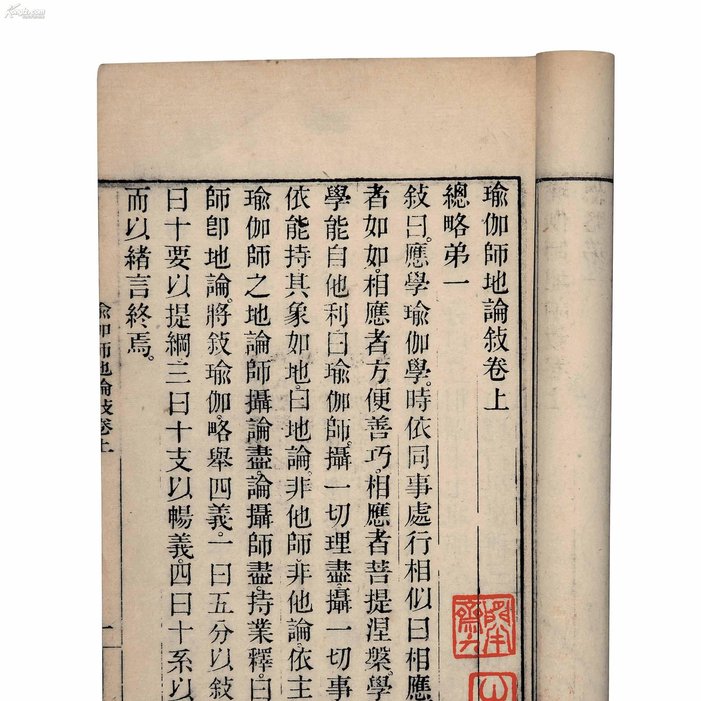 瑜伽師地論敍卷上
總略弟一
敍曰。應學瑜伽學。時依同事處行相似曰相應
者如如。相應者方便善巧。相應者菩提涅槃。學
學能自他利曰瑜伽師。攝一切理盡。攝一切事
依能持其象如地。曰地論。非他師非他論。依主
瑜伽師之地論師攝論盡。論攝師盡。持業釋。曰
師卽地論。將敍瑜伽。略舉四義。一曰五分以敍
曰十要以提綱三曰十支以暢義。四曰十系以
而以緒言終焉。
瑜伽師地論敍卷上